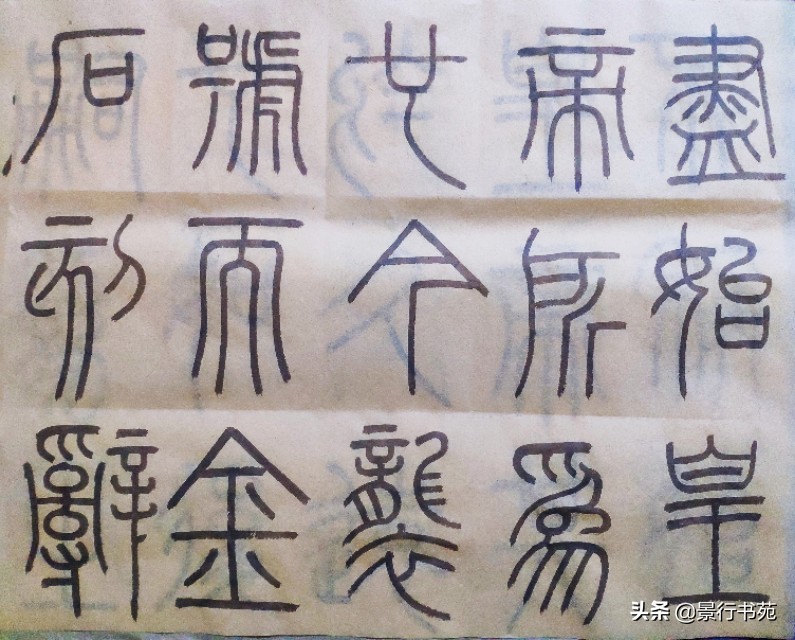 盡始皇
帝所爲
也今襲
號而金
石刻辭
头条 @景行书苑